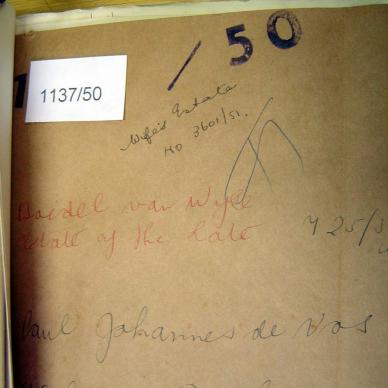 /50
1137/50
Wife's Estate
No 3601/51.
Boedel van Wyle
Estate of the late
425/5
Paul Johannes de Vos